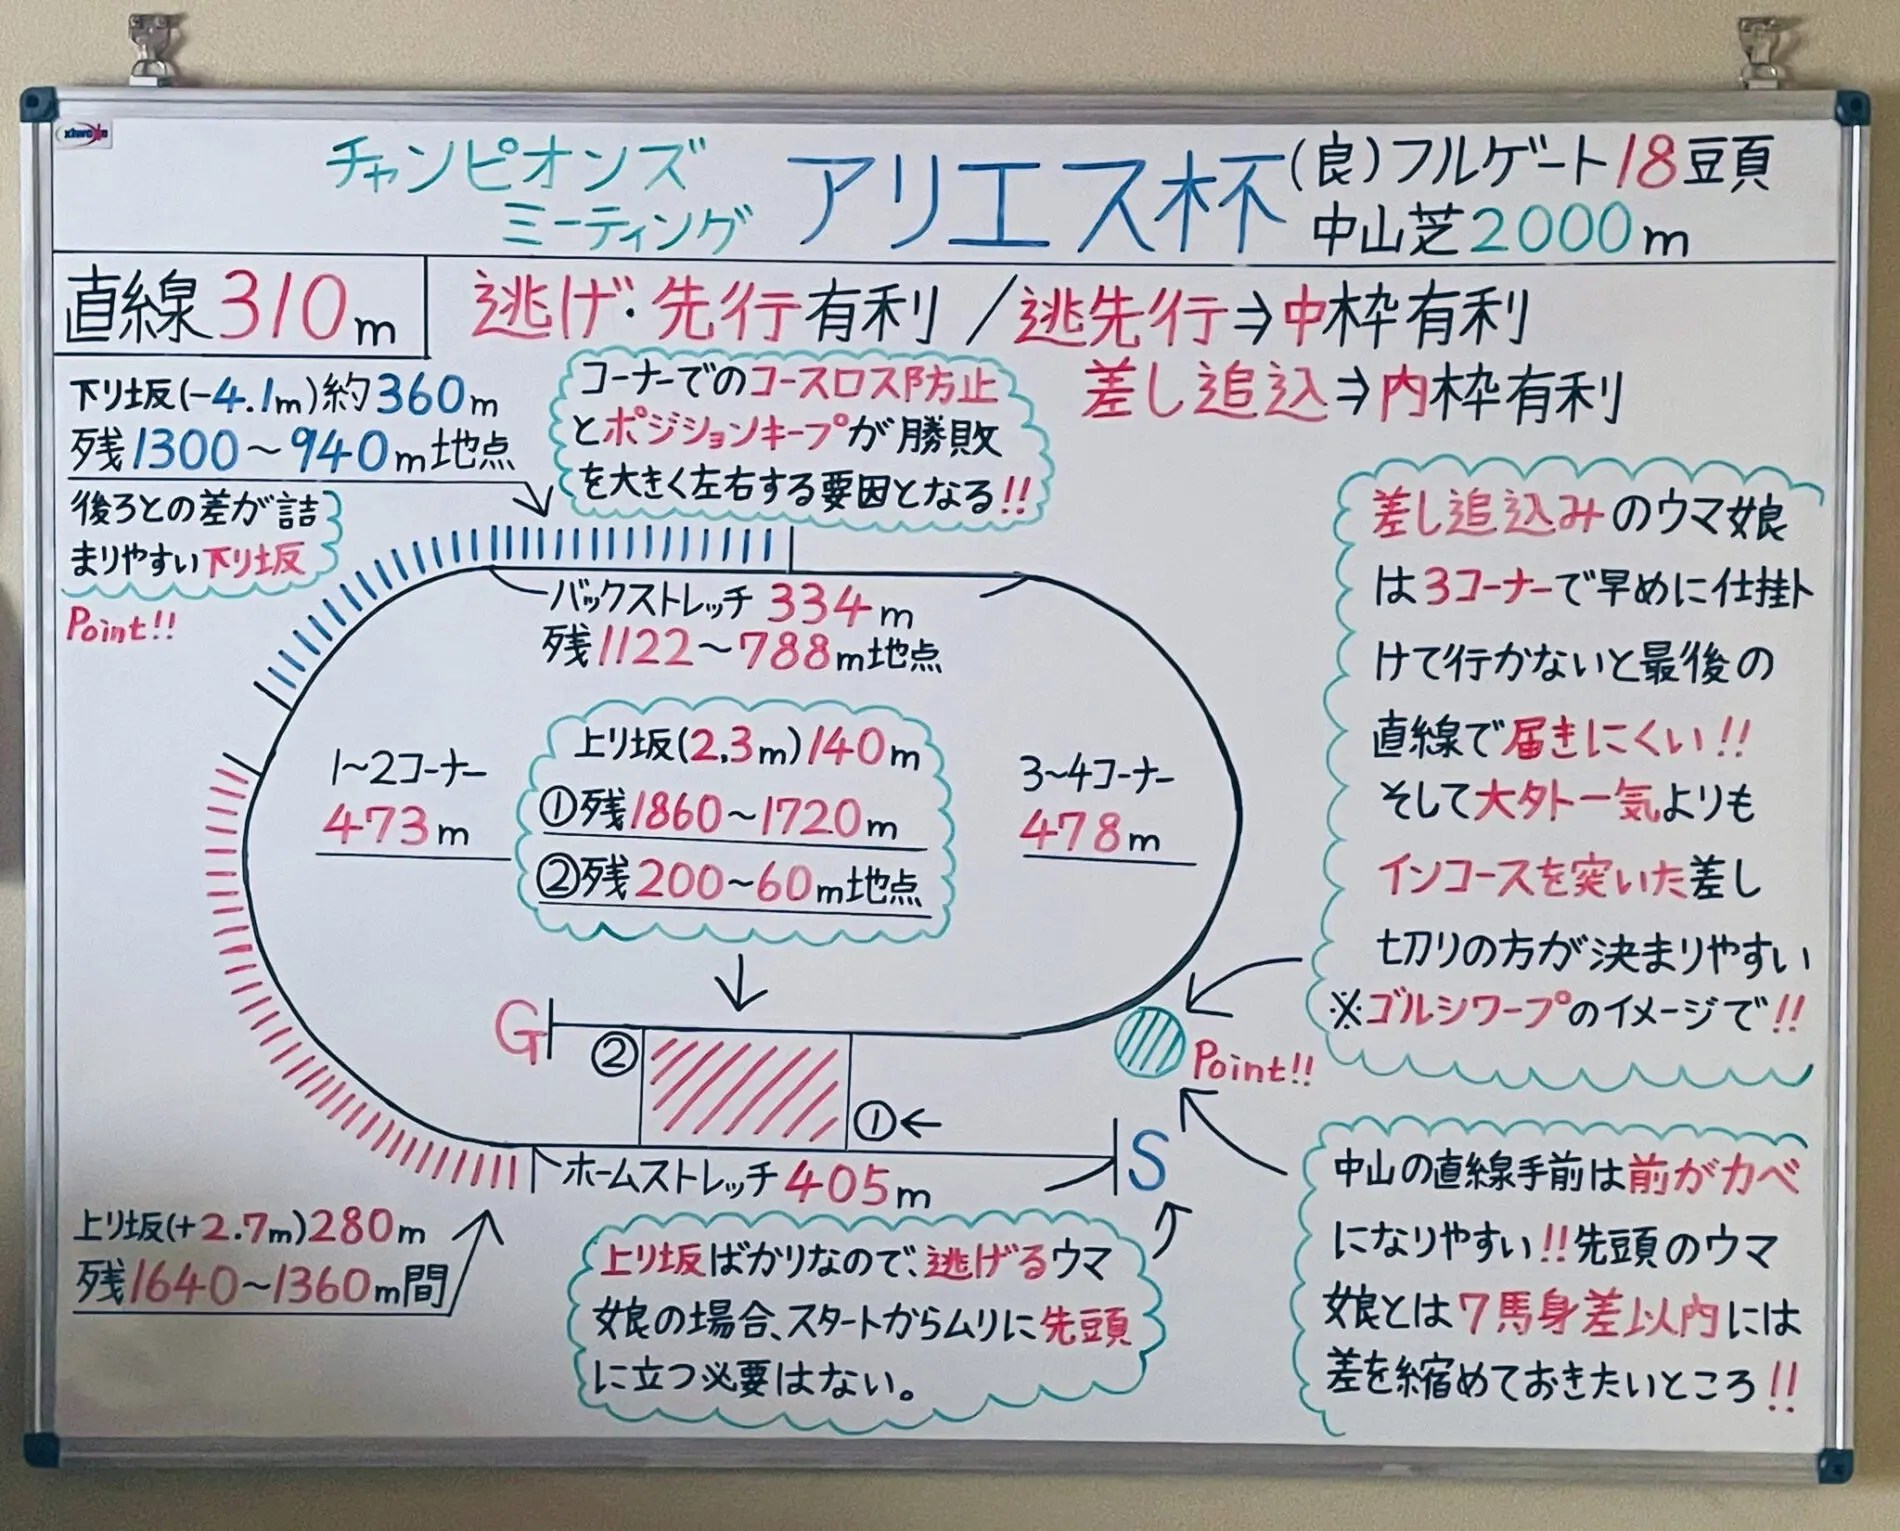 チャンピオンズ
ミーティング
アリエス杯
(良)フルゲート18頭
中山芝2000m
直線310m
逃げ・先行有利/逃先行⇒中枠有利
差し追込⇒内枠有利
下り坂(-4.1m)約360m
残1300~940m地点
後ろとの差が詰
まりやすい下り坂
Point!!
コーナーでのコースロス防止
とポジションキープが勝敗
を大きく左右する要因となる!!
バックストレッチ334m
残1122~788m地点
1~2コーナー
473m
上り坂(2.3m)140m
①残1860~1720m
②残200~60m地点
3~4コーナー
478m
差し追込みのウマ娘
は3コーナーで早めに仕掛
けて行かないと最後の
直線で届きにくい!!
そして大外一気よりも
インコースを突いた差し
切りの方が決まりやすい
※ゴルシワープのイメージで!!
G
②
①←
Point!!
S
ホームストレッチ405m
上り坂(+2.7m)280m
残1640~1360m間
上り坂ばかりなので、逃げるウマ
娘の場合、スタートからムリに先頭
に立つ必要はない。
中山の直線手前は前がカベ
になりやすい!!先頭のウマ
娘とは7馬身差以内には
差を縮めておきたいところ!!